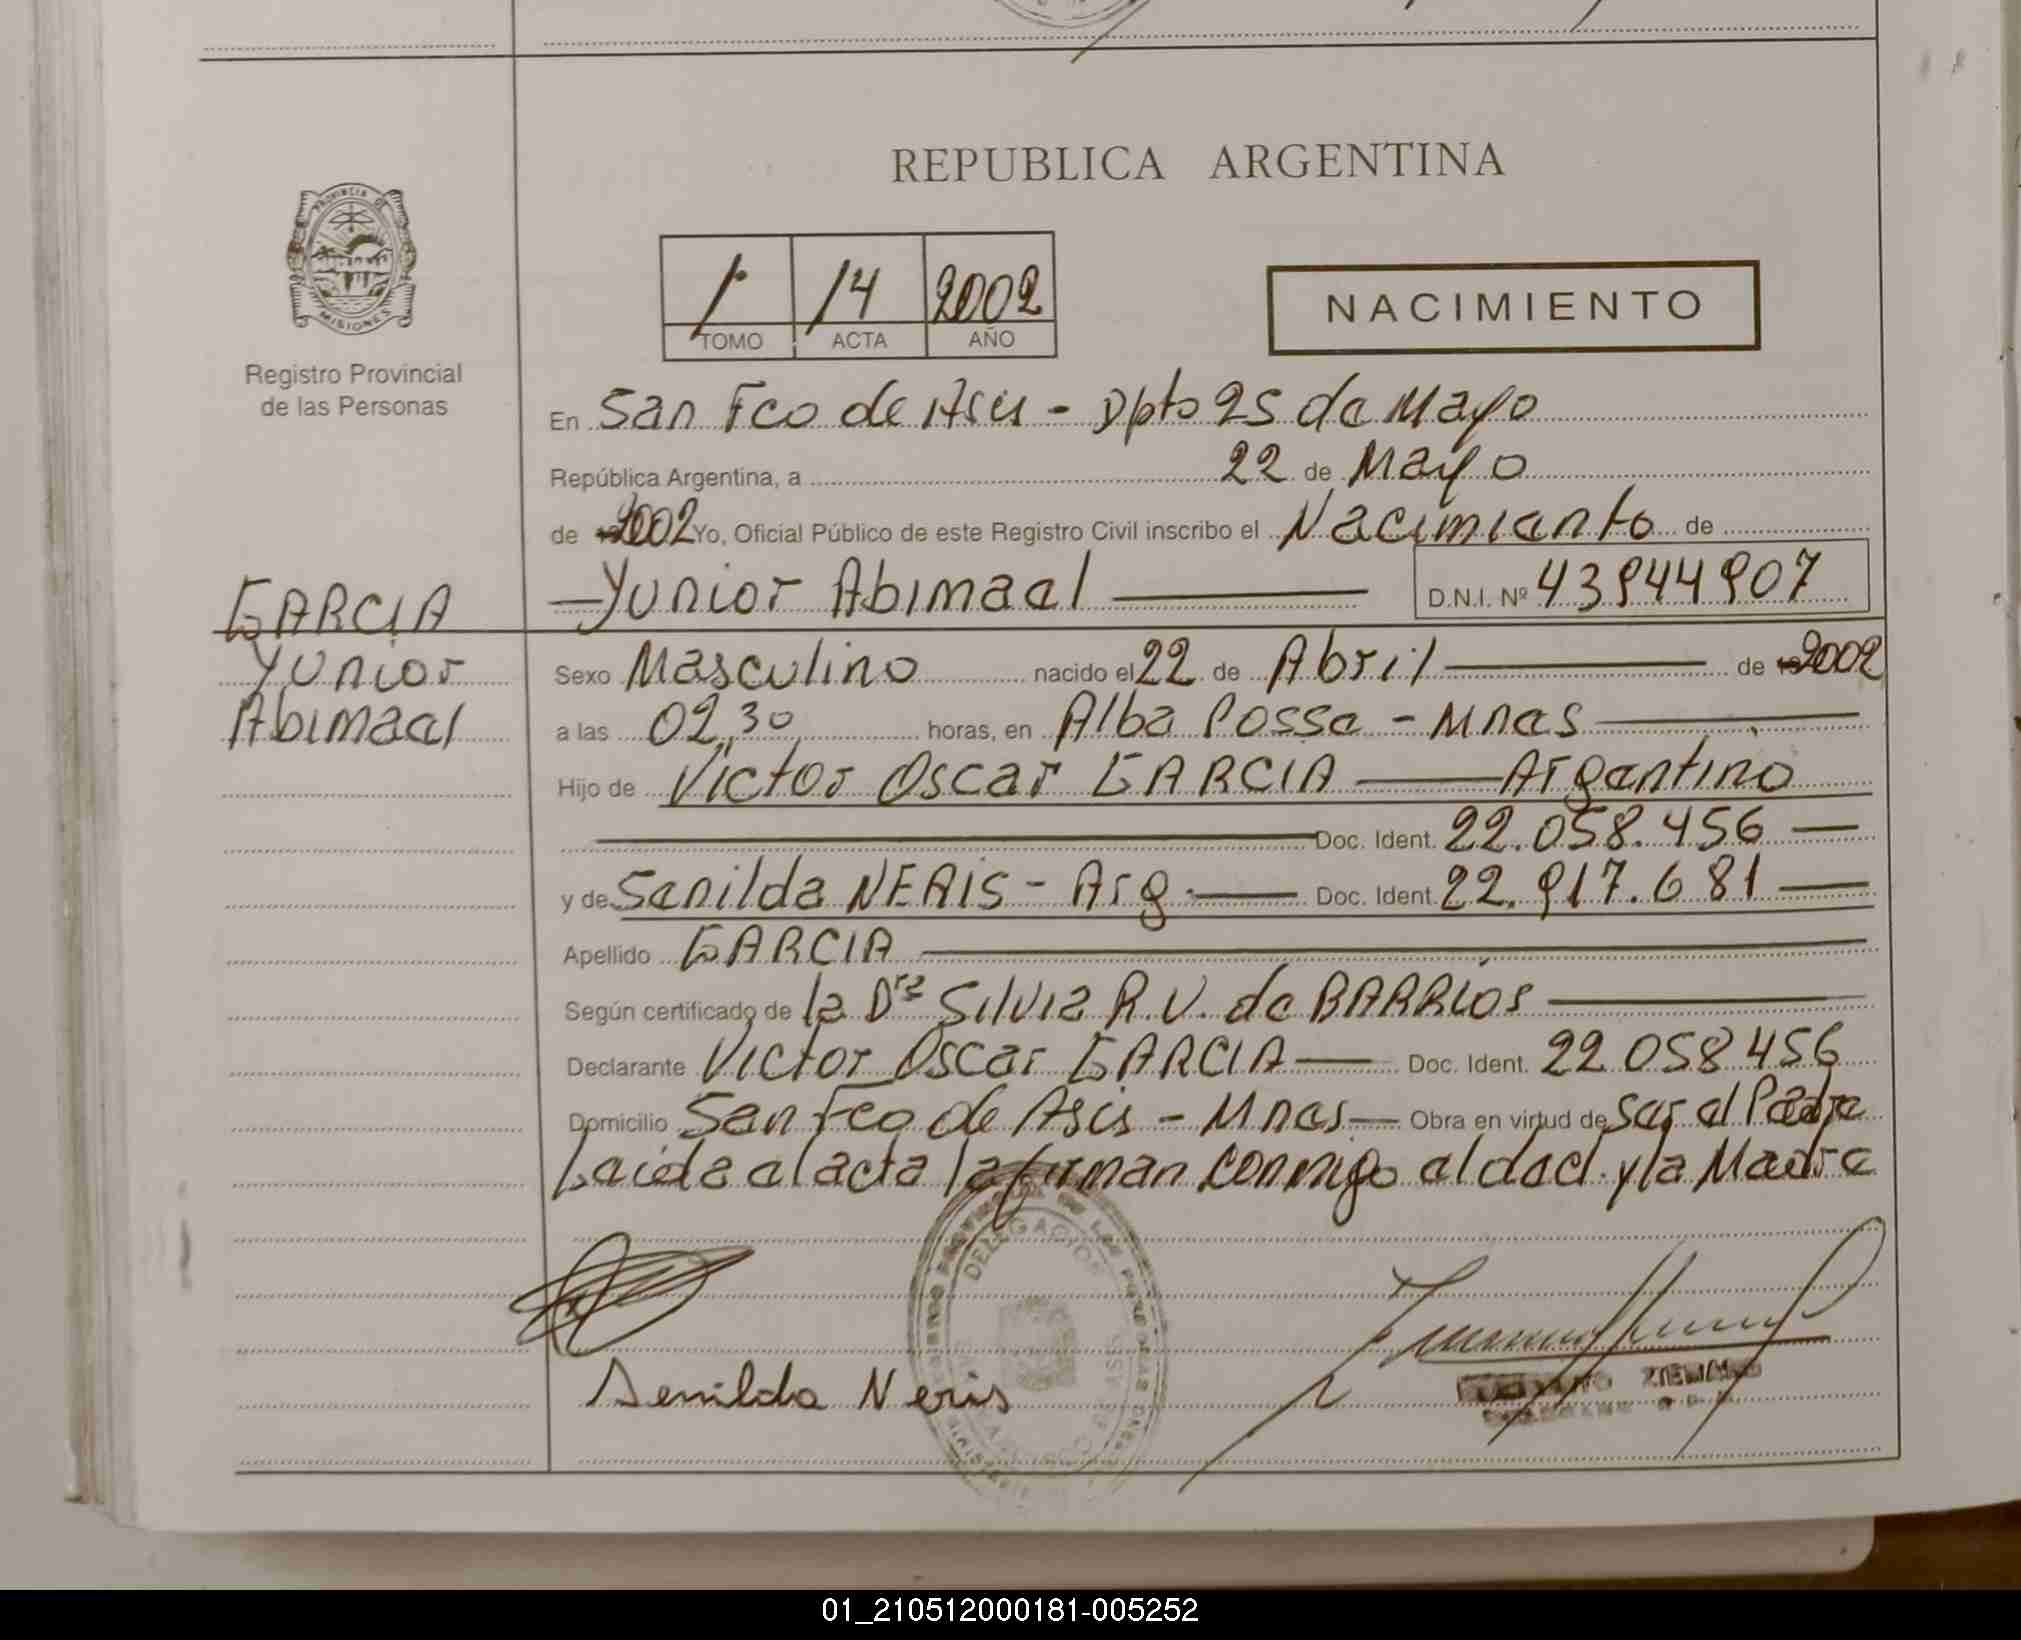 REPUBLICA ARGENTINA
PROVINCIA DE
MISIONES
Registro Provincial
de las Personas
1º 14 2002
TOMO ACTA AÑO
NACIMIENTO
En San Fco de Asis - Dpto 25 de Mayo
República Argentina, a 22 de Mayo
de 2002 Yo, Oficial Público de este Registro Civil inscribo el Nacimiento de
Yunior Abimael D.N.I. Nº 43944907
GARCIA
Yunior
Abimael
Sexo Masculino nacido el 22 de Abril de 2002
a las 02,30 horas, en Alba Posse - Mnes
Hijo de Victor Oscar GARCIA Argentino
Doc. Ident. 22.058.456
y de Senilda NERIS - Arg. Doc. Ident. 22.917.681
Apellido GARCIA
Según certificado de la Dra Silvia R.V. de BARRIOS
Declarante Victor Oscar GARCIA Doc. Ident. 22 058 456
Domicilio San Fco de Asis - Mnes Obra en virtud de Ser el Padre
Leida el acta la firman conmigo el decl. y la Madre
DELEGACION
Senilda Neris
01_210512000181-005252